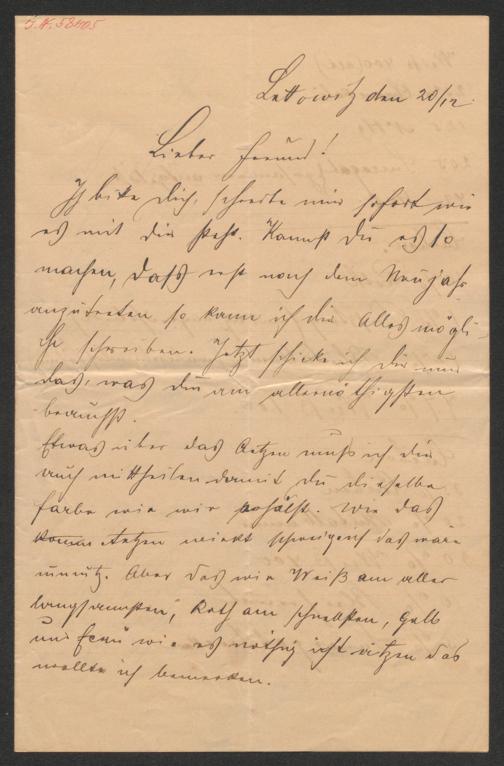 J.N. 58405
Lettowitz den 20/12.
Lieber Freund!
Ich bitte Dich, schreibe mir sofort wie
es mit dir steht. Kannst Du es so
machen, dass erst nach dem Neujahr
anzutreten so kann ich dir Alles mögli-
che schreiben. Jetzt schicke ich dir nur
das, was du am allernöthigsten
brauchst.
Etwas über das Aetzen muß ich dir
auch mittheilen damit du dieselbe
farbe wie wir erhälst. Wie das
Aetzen wirkt schreiben das wäre
unnütz. Aber das wir Weiß am aller
langsamsten, Roth am schnellsten, Gelb
und Ecru wie es nöthig ist ätzen das
wollte ich bemerken.